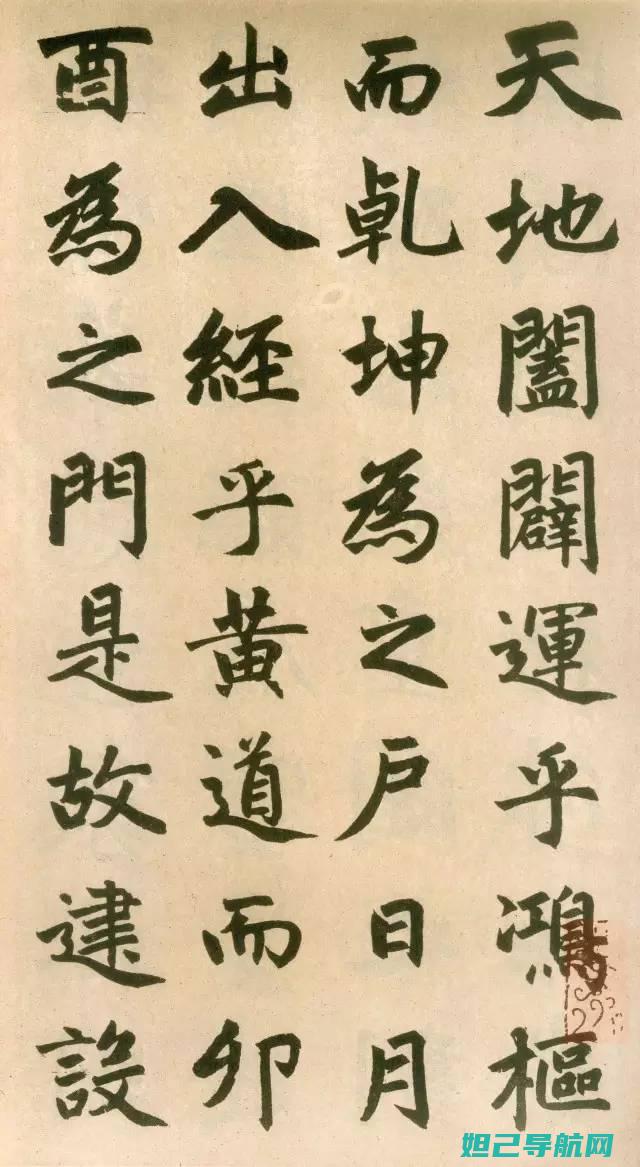 天地闔闢運乎鴻樞
而乹坤為之戶日月
出入經乎黃道而卯
酉為之門是故建設
妲己导航网